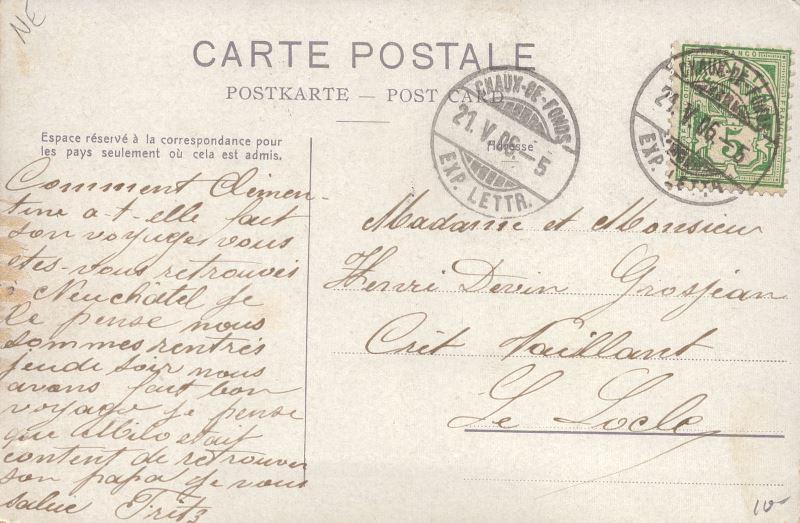 NE
CARTE POSTALE
POSTKARTE — POST CARD
Espace réservé à la correspondance pour
les pays seulement où cela est admis.
Adresse
CHAUX-DE-FONDS
21. V. 06.–5
EXP. LETTR.
FRANCO
CHAUX-DE-FONDS
21. V. 06.–5
EXP. LETTR.
5
Comment Clémen-
tine a-t-elle fait
son voyage vous
êtes-vous retrouvés
à Neuchâtel je
le pense nous
sommes rentrés
jeudi soir nous
avons fait bon
voyage je pense
que Milo etait
content de retrouver
son papa je vous
salue Fritz
Madame et Monsieur
Henri Devin Grosjean
Crêt Vaillant
Le Locle
10-